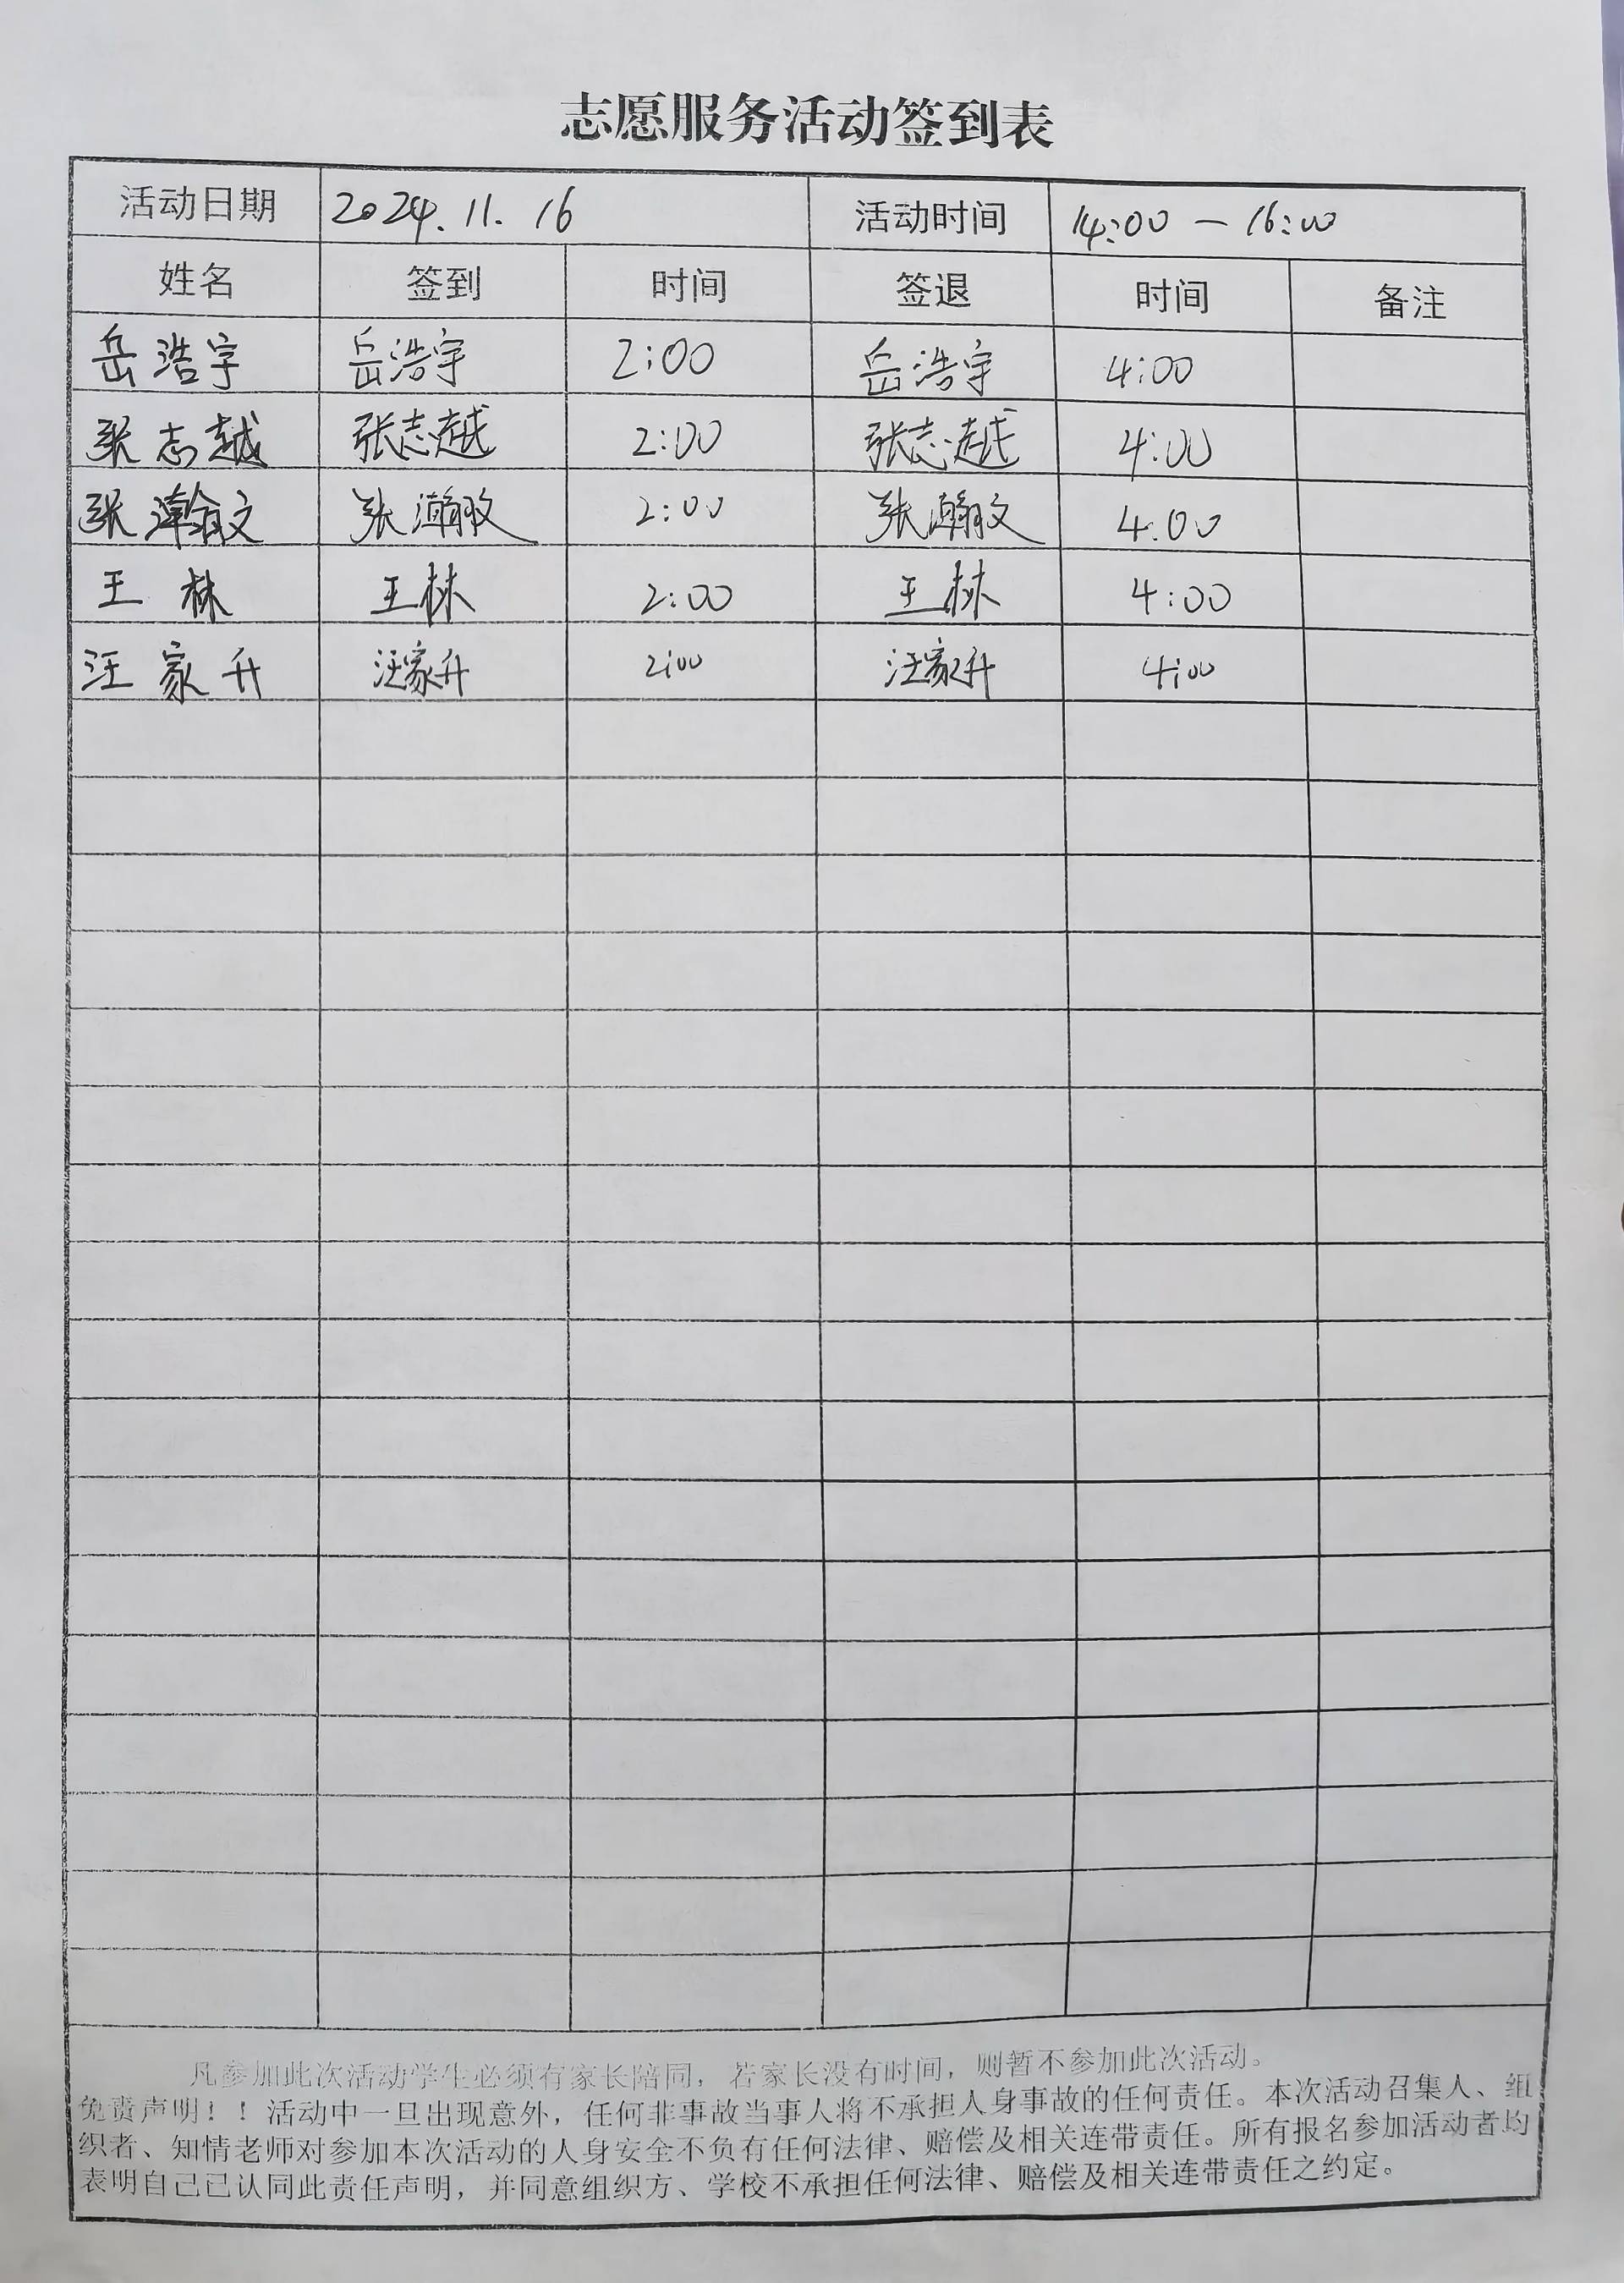 志愿服务活动签到表
活动日期 2024.11.16 活动时间 14:00 — 16:00
姓名 签到 时间 签退 时间 备注
岳浩宇 岳浩宇 2:00 岳浩宇 4:00
张志越 张志越 2:00 张志越 4:00
张瀚文 张瀚文 2:00 张瀚文 4:00
王林 王林 2:00 王林 4:00
汪家升 汪家升 2:00 汪家升 4:00
凡参加此次活动学生必须有家长陪同，若家长没有时间，则暂不参加此次活动。
免责声明！！活动中一旦出现意外，任何非事故当事人将不承担人身事故的任何责任。本次活动召集人、组
织者、知情老师对参加本次活动的人身安全不负有任何法律、赔偿及相关连带责任。所有报名参加活动者均
表明自己已认同此责任声明，并同意组织方、学校不承担任何法律、赔偿及相关连带责任之约定。